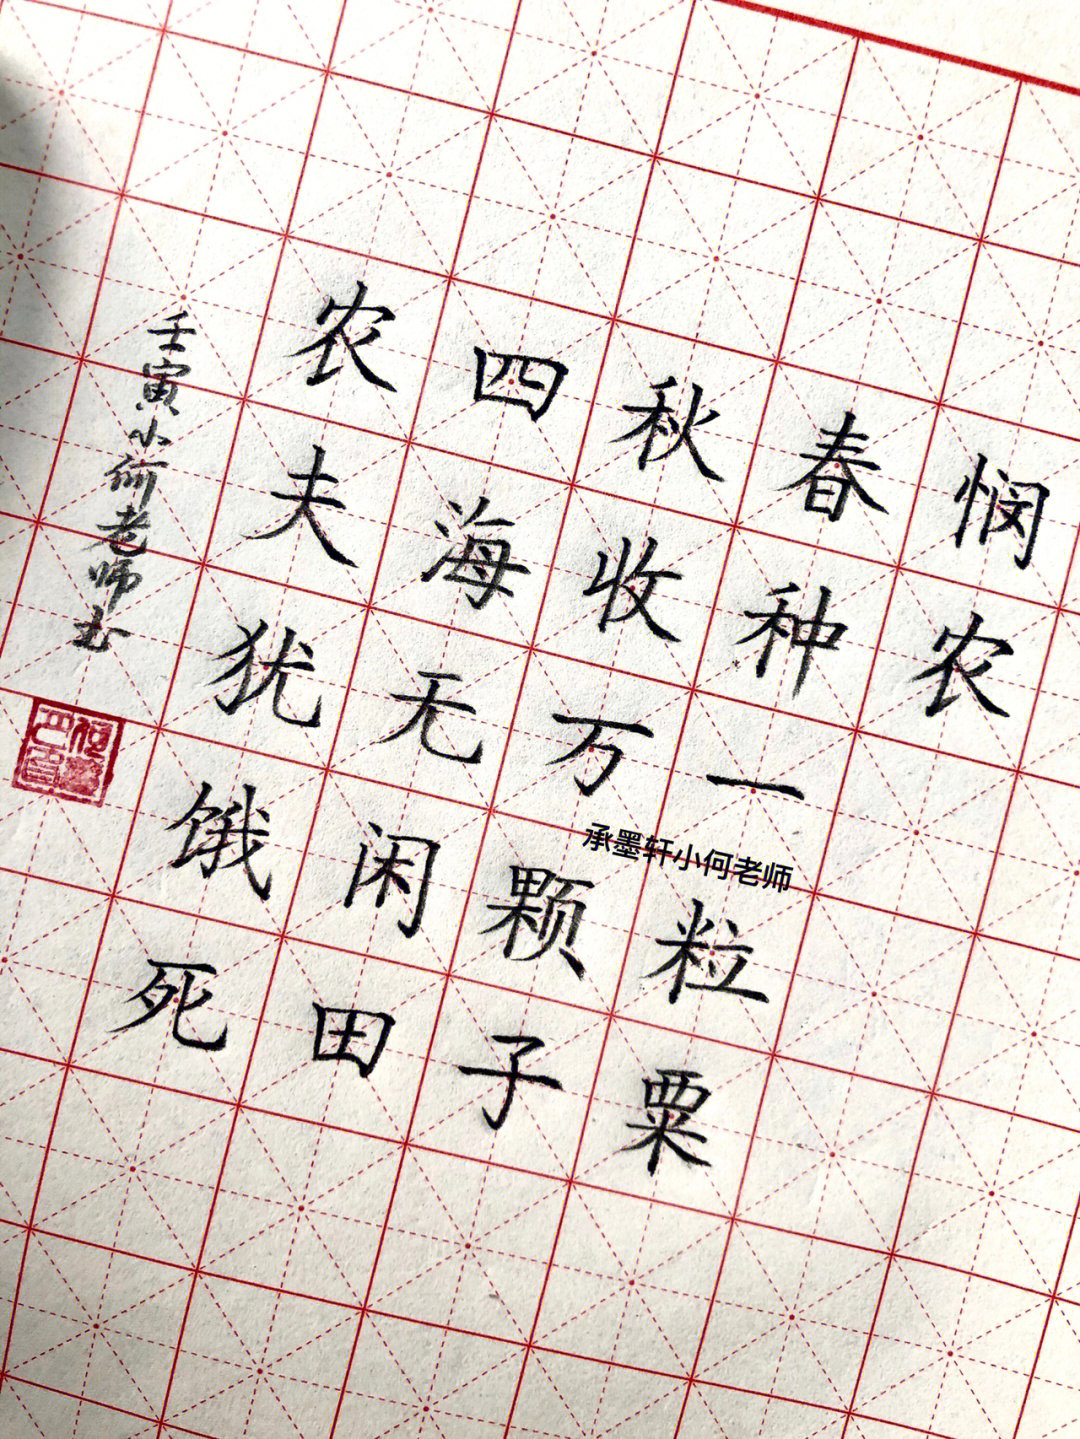 悯农
春种一粒粟
秋收万颗子
四海无闲田
农夫犹饿死
壬寅小何老师书
承墨轩小何老师